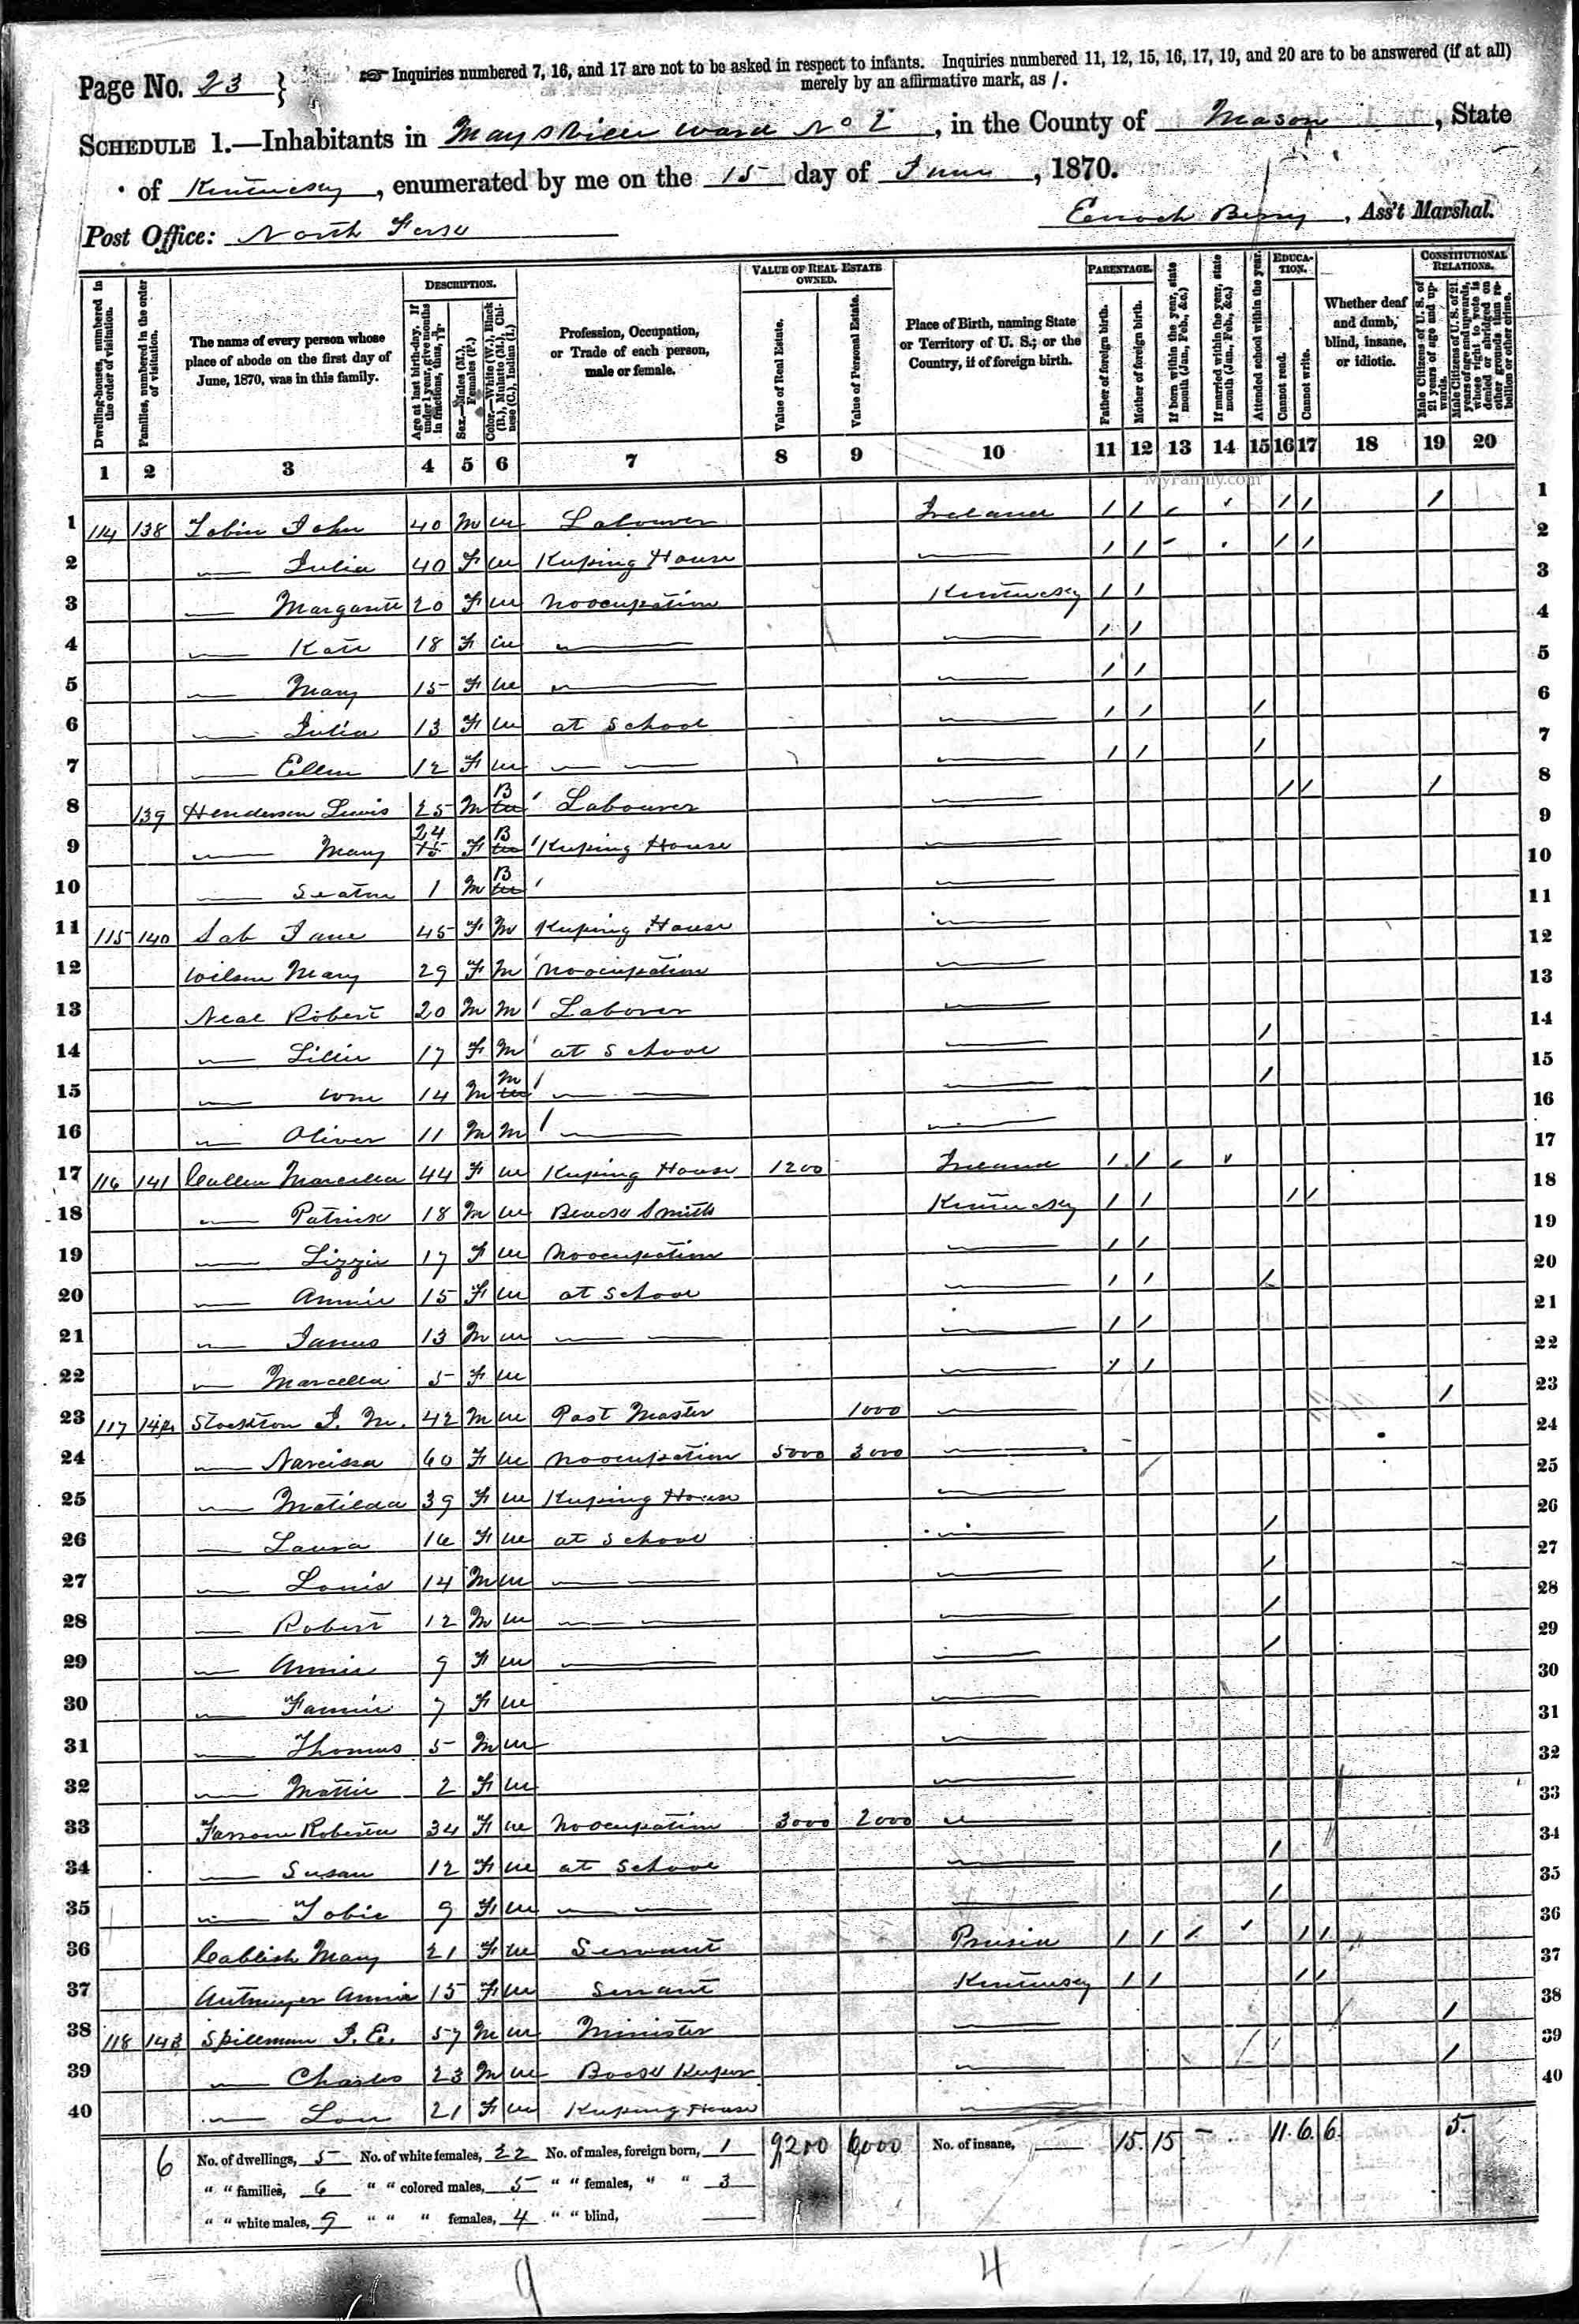 Page No. 23 } ☞ Inquiries numbered 7, 16, and 17 are not to be asked in respect to infants. Inquiries numbered 11, 12, 15, 16, 17, 19, and 20 are to be answered (if at all)
merely by an affirmative mark, as /.
SCHEDULE 1.—Inhabitants in Maysville Ward No 2, in the County of Mason, State
of Kentucky, enumerated by me on the 15 day of June, 1870.
Post Office: North
Enoch Berry, Ass't Marshal.
Dwelling-houses, numbered in the order of visitation.
Families, numbered in the order of visitation.
The name of every person whose place of abode on the first day of June, 1870, was in this family.
DESCRIPTION.
Age at last birth-day. If under 1 year, give months in fractions, thus, 3/12.
Sex.—Males (M.), Females (F.)
Color.—White (W.), Black (B.), Mulatto (M.), Chinese (C.), Indian (I.)
Profession, Occupation, or Trade of each person, male or female.
VALUE OF REAL ESTATE OWNED.
Value of Real Estate.
Value of Personal Estate.
Place of Birth, naming State or Territory of U. S.; or the Country, if of foreign birth.
PARENTAGE.
Father of foreign birth.
Mother of foreign birth.
If born within the year, state month (Jan., Feb., &c.)
If married within the year, state month (Jan., Feb., &c.)
Attended school within the year.
EDUCATION.
Cannot read.
Cannot write.
Whether deaf and dumb, blind, insane, or idiotic.
CONSTITUTIONAL RELATIONS.
Male Citizens of U. S. of 21 years of age and upwards.
Male Citizens of U. S. of 21 years of age and upwards, whose right to vote is denied or abridged on other grounds than rebellion or other crime.
1 2 3 4 5 6 7 8 9 10 11 12 13 14 15 16 17 18 19 20
MyFamily.com
1 114 138 Tobin John 40 M W Labourer Ireland / / / / / 1
2 — Julia 40 F W Keeping House — / / / / 2
3 — Margarett 20 F W No ocupation Kentucky / / 3
4 — Kate 18 F W — — / / 4
5 — Mary 15 F W — — / / 5
6 — Julia 13 F W at School — / / / 6
7 — Ellen 12 F W — — — / / / 7
8 139 Henderson Lewis 25 M B Labourer — / / / 8
9 — Mary 24 F B Keeping House — 9
10 — Seaton 1 M B — 10
11 115 140 Jane 45 F M Keeping House — 11
12 Wilson Mary 29 F M No ocupation — 12
13 Neal Robert 20 M M Laborer — 13
14 — Lillie 17 F M at School — / 14
15 — Wm 14 M M — — — / 15
16 — Oliver 11 M M — — 16
17 116 141 Cullen Marcella 44 F W Keeping House 1200 Ireland / / 17
18 — Patrick 18 M W Black Smith Kentucky / / / / 18
19 — Lizzie 17 F W No ocupation — / / 19
20 — Annie 15 F W at School — / / / 20
21 — James 13 M W — — — / / 21
22 — Marcella 5 F W — / / 22
23 117 142 Stockton J. M. 42 M W Post Master 1000 — / 23
24 — Narcissa 60 F W No ocupation 5000 3000 — 24
25 — Matilda 39 F W Keeping House — 25
26 — Laura 16 F W at School — / 26
27 — Louis 14 M W — — — / 27
28 — Robert 12 M W — — — / 28
29 — Annie 9 F W — — / 29
30 — Fannie 7 F W — 30
31 — Thomas 5 M W — 31
32 — Mattie 2 F W — 32
33 Roberta 34 F W No ocupation 3000 2000 — 33
34 — Susan 12 F W at School — / 34
35 — Tobie 9 F W — — — / 35
36 Mary 21 F W Servant Prusia / / / / / / 36
37 Annie 15 F W Servant Kentucky / / / / 37
38 118 143 Spillman J. E. 57 M W Minister — / 38
39 — Charles 23 M W Book Keeper — / 39
40 — Lou 21 F W Keeping House — 40
6 No. of dwellings, 5 No. of white females, 22 No. of males, foreign born, 1 9,200 6,000 No. of insane, — 15. 15 — 11. 6. 6. 5.
" " families, 6 " " colored males, 5 " " females, " " 3
" " white males, 9 " " " females, 4 " " blind, —
9 4